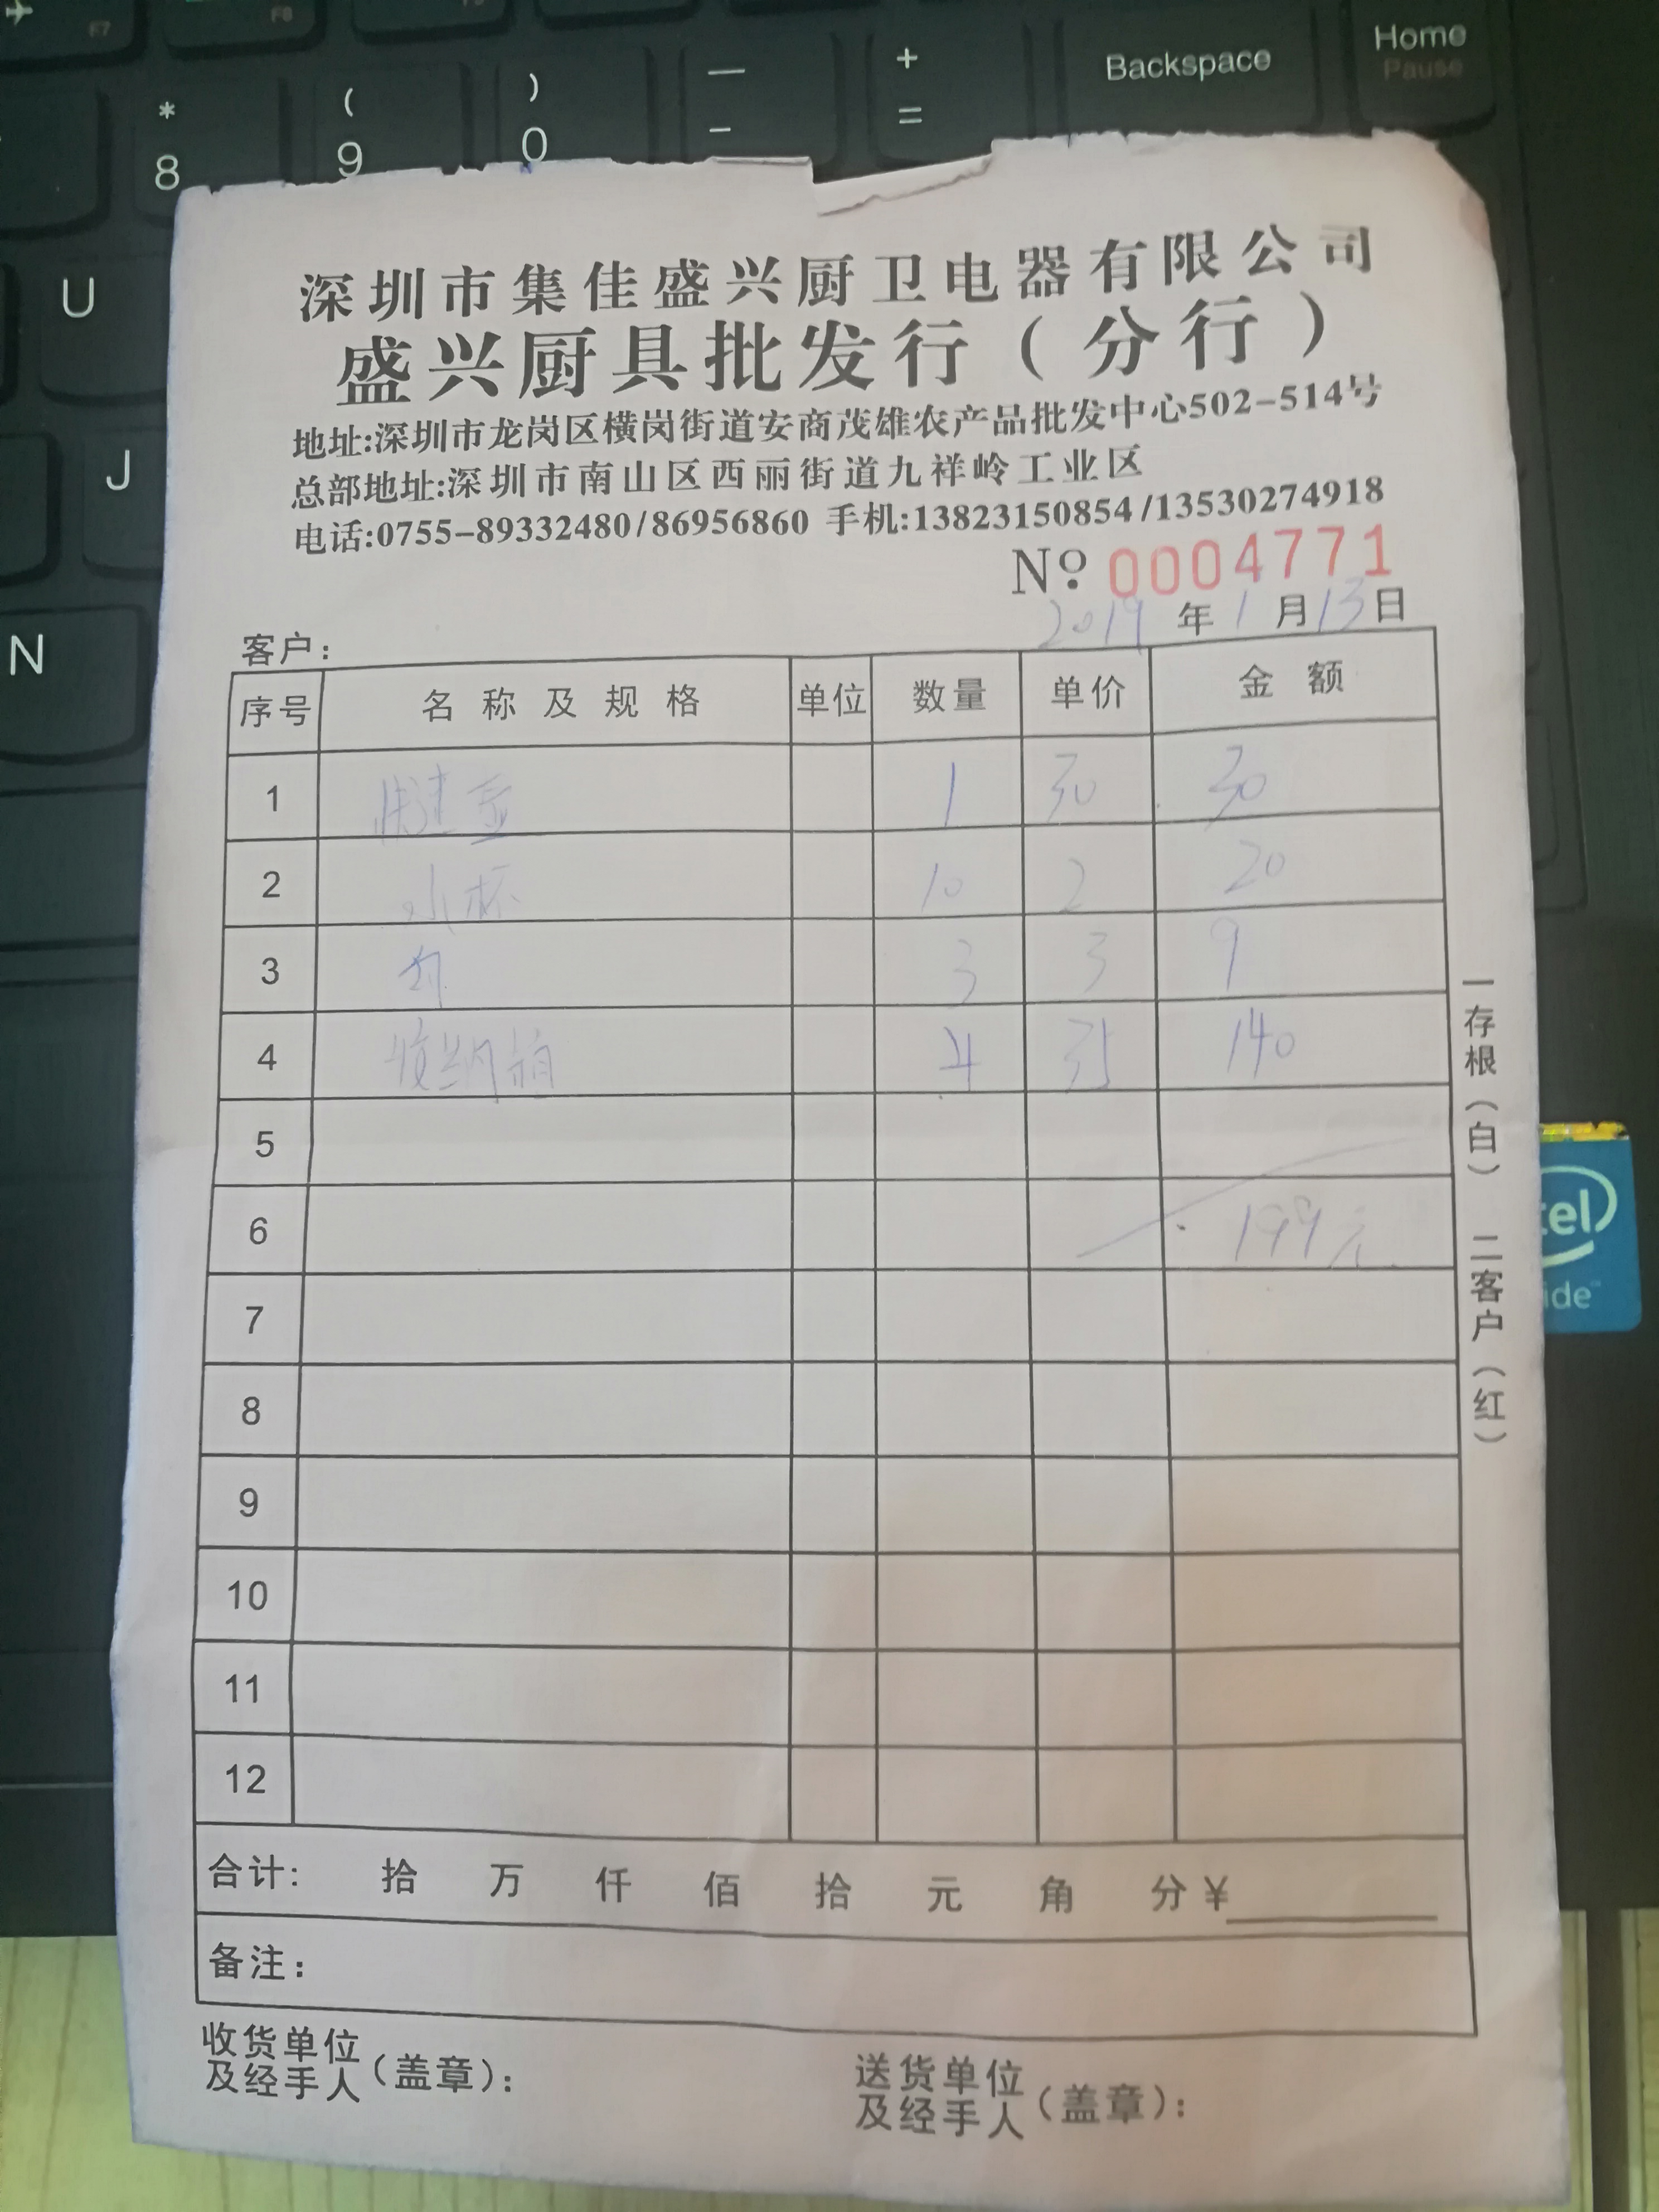 F7 F8
* ( ) — + Backspace Home
8 9 0 - = Pause
U
J
N
深圳市集佳盛兴厨卫电器有限公司
盛兴厨具批发行（分行）
地址:深圳市龙岗区横岗街道安商茂雄农产品批发中心502-514号
总部地址:深圳市南山区西丽街道九祥岭工业区
电话:0755-89332480/86956860 手机:13823150854/13530274918
Nº 0004771
2019 年 1 月 13 日
客户：
序号 名称及规格 单位 数量 单价 金额
1 1 30 30
2 小杯 10 2 20
3 3 3 9
4 收纳箱 4 35 140
5
6 199元
7
8
9
10
11
12
合计: 拾 万 仟 佰 拾 元 角 分 ¥
备注：
收货单位
及经手人（盖章）：
送货单位
及经手人（盖章）：
一存根（白） 二客户（红）
tel
ide™